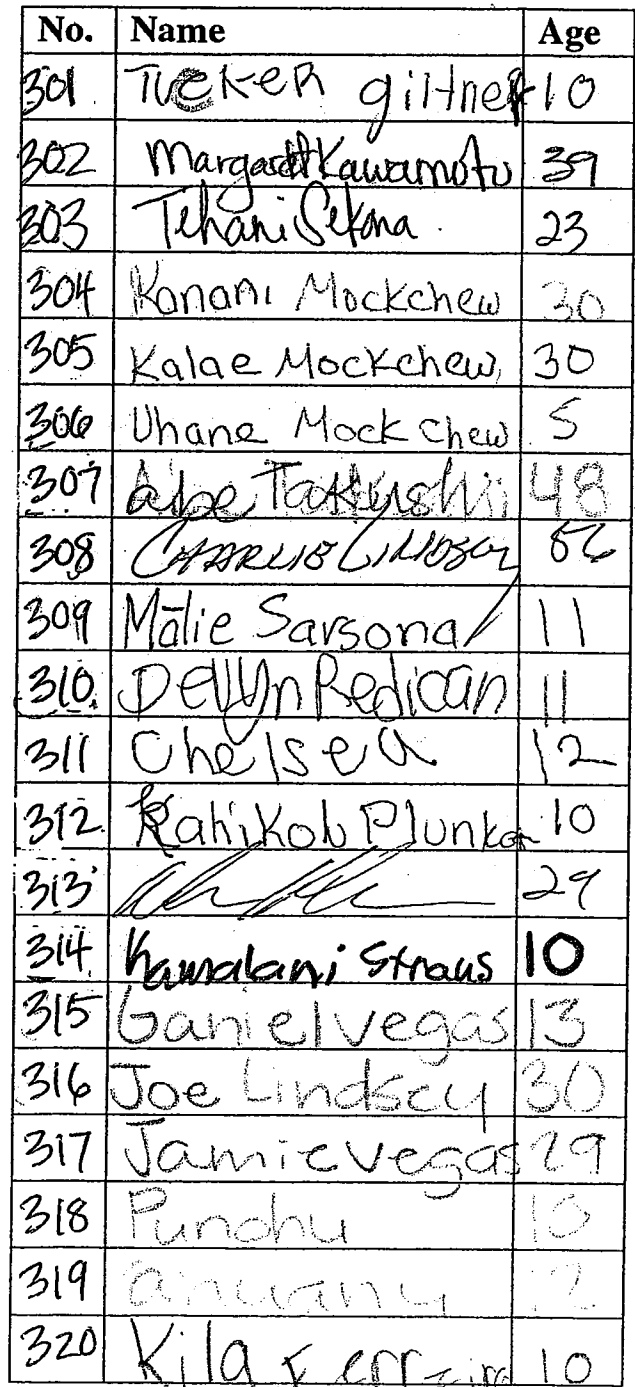 No. Name Age
301 Tucker giltner 10
302 Margaret Kawamoto 39
303 Tehani Sekona 23
304 Kanani Mockchew 30
305 Kalae Mockchew 30
306 Uhane Mock chew 5
307 abe Takushi 48
308 CHARLIE LINDSEY 56
309 Mālie Sarsona 11
310 Devyn Redican 11
311 Chelsea 12
312 Kahikolu Plunket 10
313 29
314 Kamalani Straus 10
315 Ganiel vegas 13
316 Joe Lindsey 30
317 Jamie vegas 29
318 Punohu 10
319
320 Kila Ferreira 10